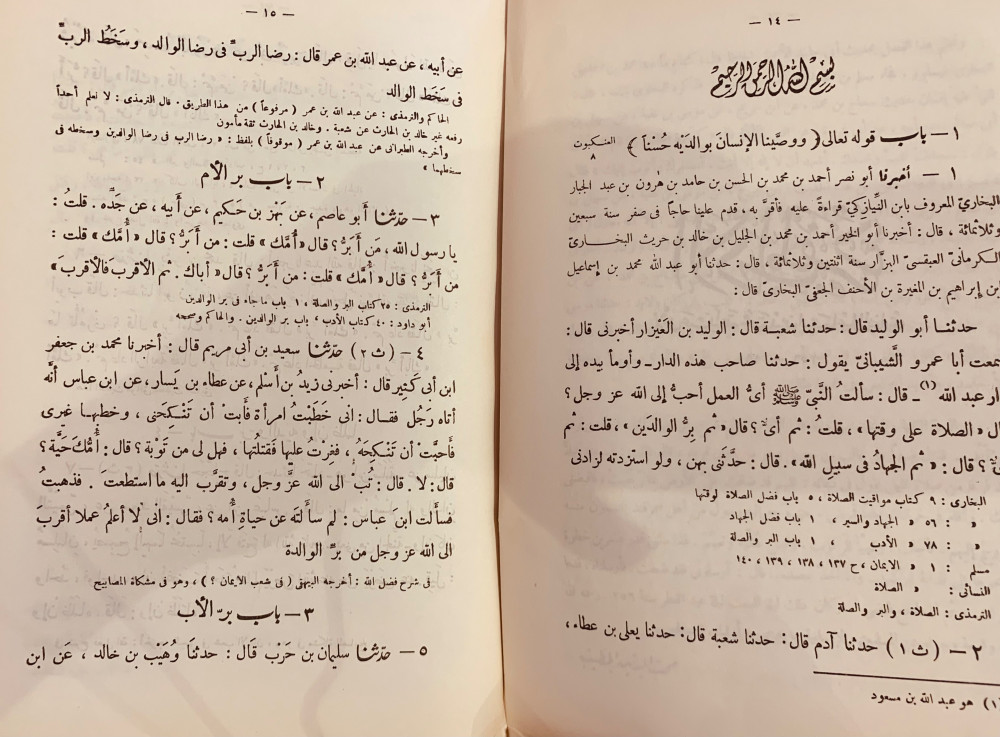 — ١٤ —
بسم الله الرحمن الرحيم
١ — باب قوله تعالى ﴿ ووصَّينا الإنسانَ بوالدَيْه حُسْناً ﴾ العنكبوت ٨
١ — أخبرنا أبو نصر أحمد بن محمد بن الحسن بن حامد بن هٰرون بن عبد الجبار
البخاريّ المعروف بابن النِّيازِكيّ قراءةً عليه فأقرَّ به ، قدم علينا حاجاً فى صفر سنة سبعين
وثلاثمائة ، قال : أخبرنا أبو الخير أحمد بن محمد بن الجليل بن خالد بن حريث البخــاريّ
الكرمانيّ العبقسىّ البزّار سنة اثنتين وثلاثمائة ، قال : حدثنا أبو عبد الله محمد بن إسماعيل
ابن إبراهيم بن المغيرة بن الأحنف الجعفىّ البخارىّ قال :
حدثنــا أبو الوليد قال : حدثنا شعبة قال : الوليد بن العَيْزار أخبرنى قال :
سمعت أبا عمرو الشَّيبانىّ يقول : حدثنا صاحب هذه الدار ــ وأومأ بيده إلى
دار عبد الله (١) ــ قال : سألتُ النَّبيّ ﷺ أىُّ العمل أحبُّ إلى الله عز وجل ؟
قال « الصلاة على وقتها » ، قلتُ : ثم أىّ ؟ قال « ثم بِرُّ الوالدَين » ، قلت : ثم
أىّ ؟ قال : « ثم الجهادُ فى سبيل الله » . قال : حدَّثَنى بهن ، ولو استزدته لزادنى
البخارى : ٩ كتاب مواقيت الصلاة ، ٥ باب فضل الصلاة لوقتها
» : ٥٦ » الجهاد والسير ، ١ باب فضل الجهاد
» : ٧٨ » الأدب ، ١ باب البر والصلة
مسلم : ١ » الايمان ، ح ١٣٧ ، ١٣٨ ، ١٣٩ ، ١٤٠
النسائى : » الصلاة
الترمذى : الصلاة ، والبر والصلة
٢ — ( ث ١ ) حدثنا آدم قال : حدثنا شعبة قال : حدثنا يعلى بن عطاء ،
(١) هو عبد الله بن مسعود
— ١٥ —
عن أبيه ، عن عبد الله بن عمر قال : رضا الربِّ فى رضا الوالد ، وسَخَطُ الربِّ
فى سَخَط الوالد
الحاكم والترمذى : عن عبد الله بن عمر ( مرفوعاً ) من هذا الطريق . قال الترمذى : لا نعلم أحداً
رفعه غير خالد بن الحارث عن شعبة . وخالد بن الحارث ثقة مأمون
وأخرجه الطبرانى عن عبد الله بن عمر ( موقوفاً ) بلفظ : « رضا الرب فى رضا الوالدين وسخطه فى
سخطهما »
٢ — باب بر الأم
٣ — حدّثنا أبو عاصم ، عن بَهْز بن حَكيم ، عن أبيه ، عن جَدّه . قلتُ :
يا رسول الله ، مَن أَبَرُّ ؟ قال « أُمَّك » قلت : من أَبَرُّ ؟ قال « أُمَّك » قلت :
من أَبَرُّ ؟ قال « أُمَّك » قلت : من أَبَرُّ ؟ قال « أباك . ثم الأقربَ فالأقربَ »
الترمذى : ٢٥ كتاب البر والصلة ، ١ باب ما جاء فى بر الوالدين
أبو داود : ٤٠ كتاب الأدب ، باب بر الوالدين . والحاكم وصححه
٤ — ( ث ٢ ) حدّثنا سعيد بن أبى مريم قال : أخبرنا محمد بن جعفر
ابن أبى كَثِير قال : أخبرنى زيدُ بن أسْلم ، عن عطاء بن يَسار ، عن ابن عباس أنَّه
أتاه رَجُل فقــال : انى خَطَبْتُ امرأة فأبت أن تَنْكِحَنى ، وخطبهــا غيرى
فأحبَّت أن تَنْكِحَهُ ، فغِرْتُ عليها فقَتلتُها ، فهل لى من تَوْبة ؟ قال : أُمُّكَ حَيَّة ؟
قال : لا . قال : تُبْ الى الله عزَّ وجل ، وتقرَّب اليه ما استطعتَ . فذهبتُ
فسألت ابنَ عباس : لم سألتَه عن حياةِ أُمه ؟ فقال : انى لا أعلمُ عملا أقربَ
الى الله عز وجل من برّ الوالدة
فى شرح فضل الله : أخرجه البيهقى ( فى شعب الايمان ؟ ) ، وهو فى مشكاة المصابيح
٣ — باب برّ الأب
٥ — حدّثنا سليمان بن حَرْب قال : حدثنا وُهَيْب بن خالد ، عَن ابن